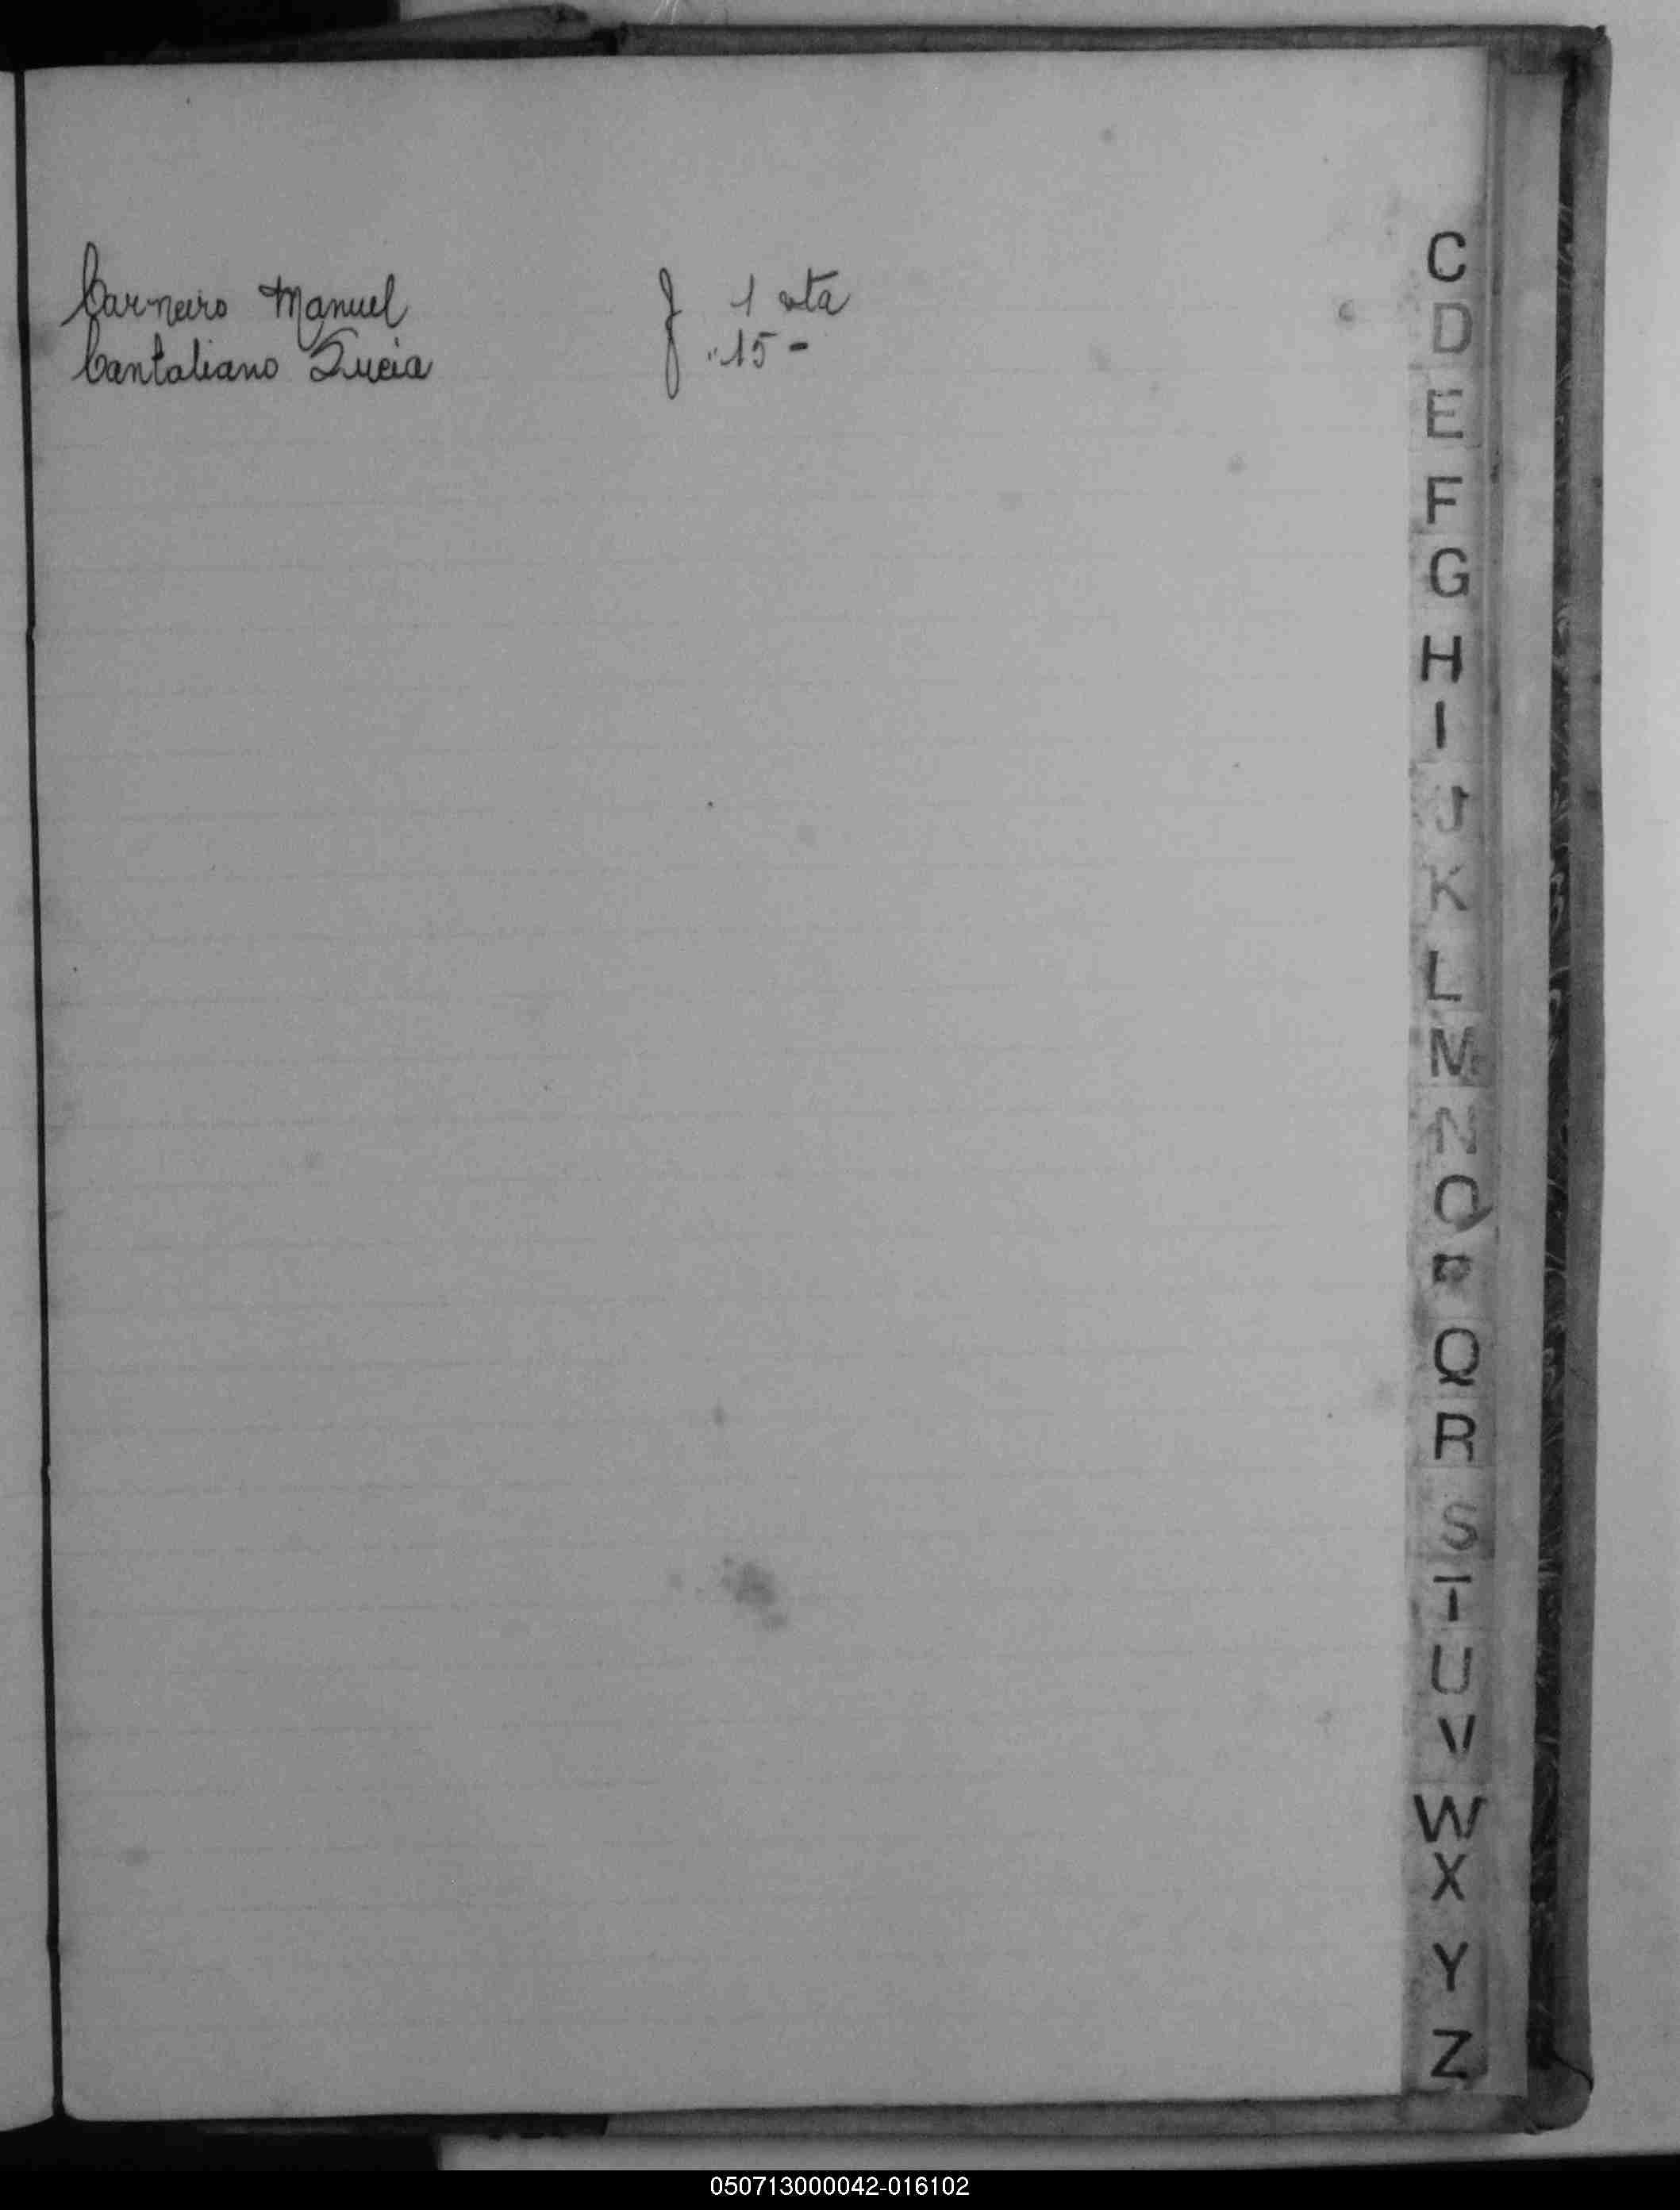 Carneiro Manuel f 1 vta
Cantaliano Lucia f " 15 -
C
D
E
F
G
H
I
J
K
L
M
N
O
P
Q
R
S
T
U
V
W
X
Y
Z
050713000042-016102